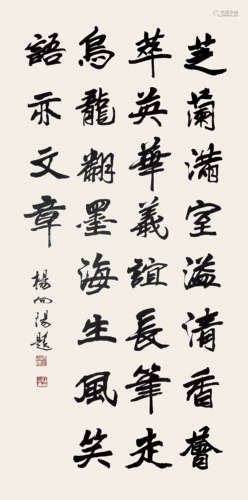 芝蘭滿室溢清香薈
萃英華義誼長筆走
烏龍翻墨海生風笑
語亦文章
楊向陽題